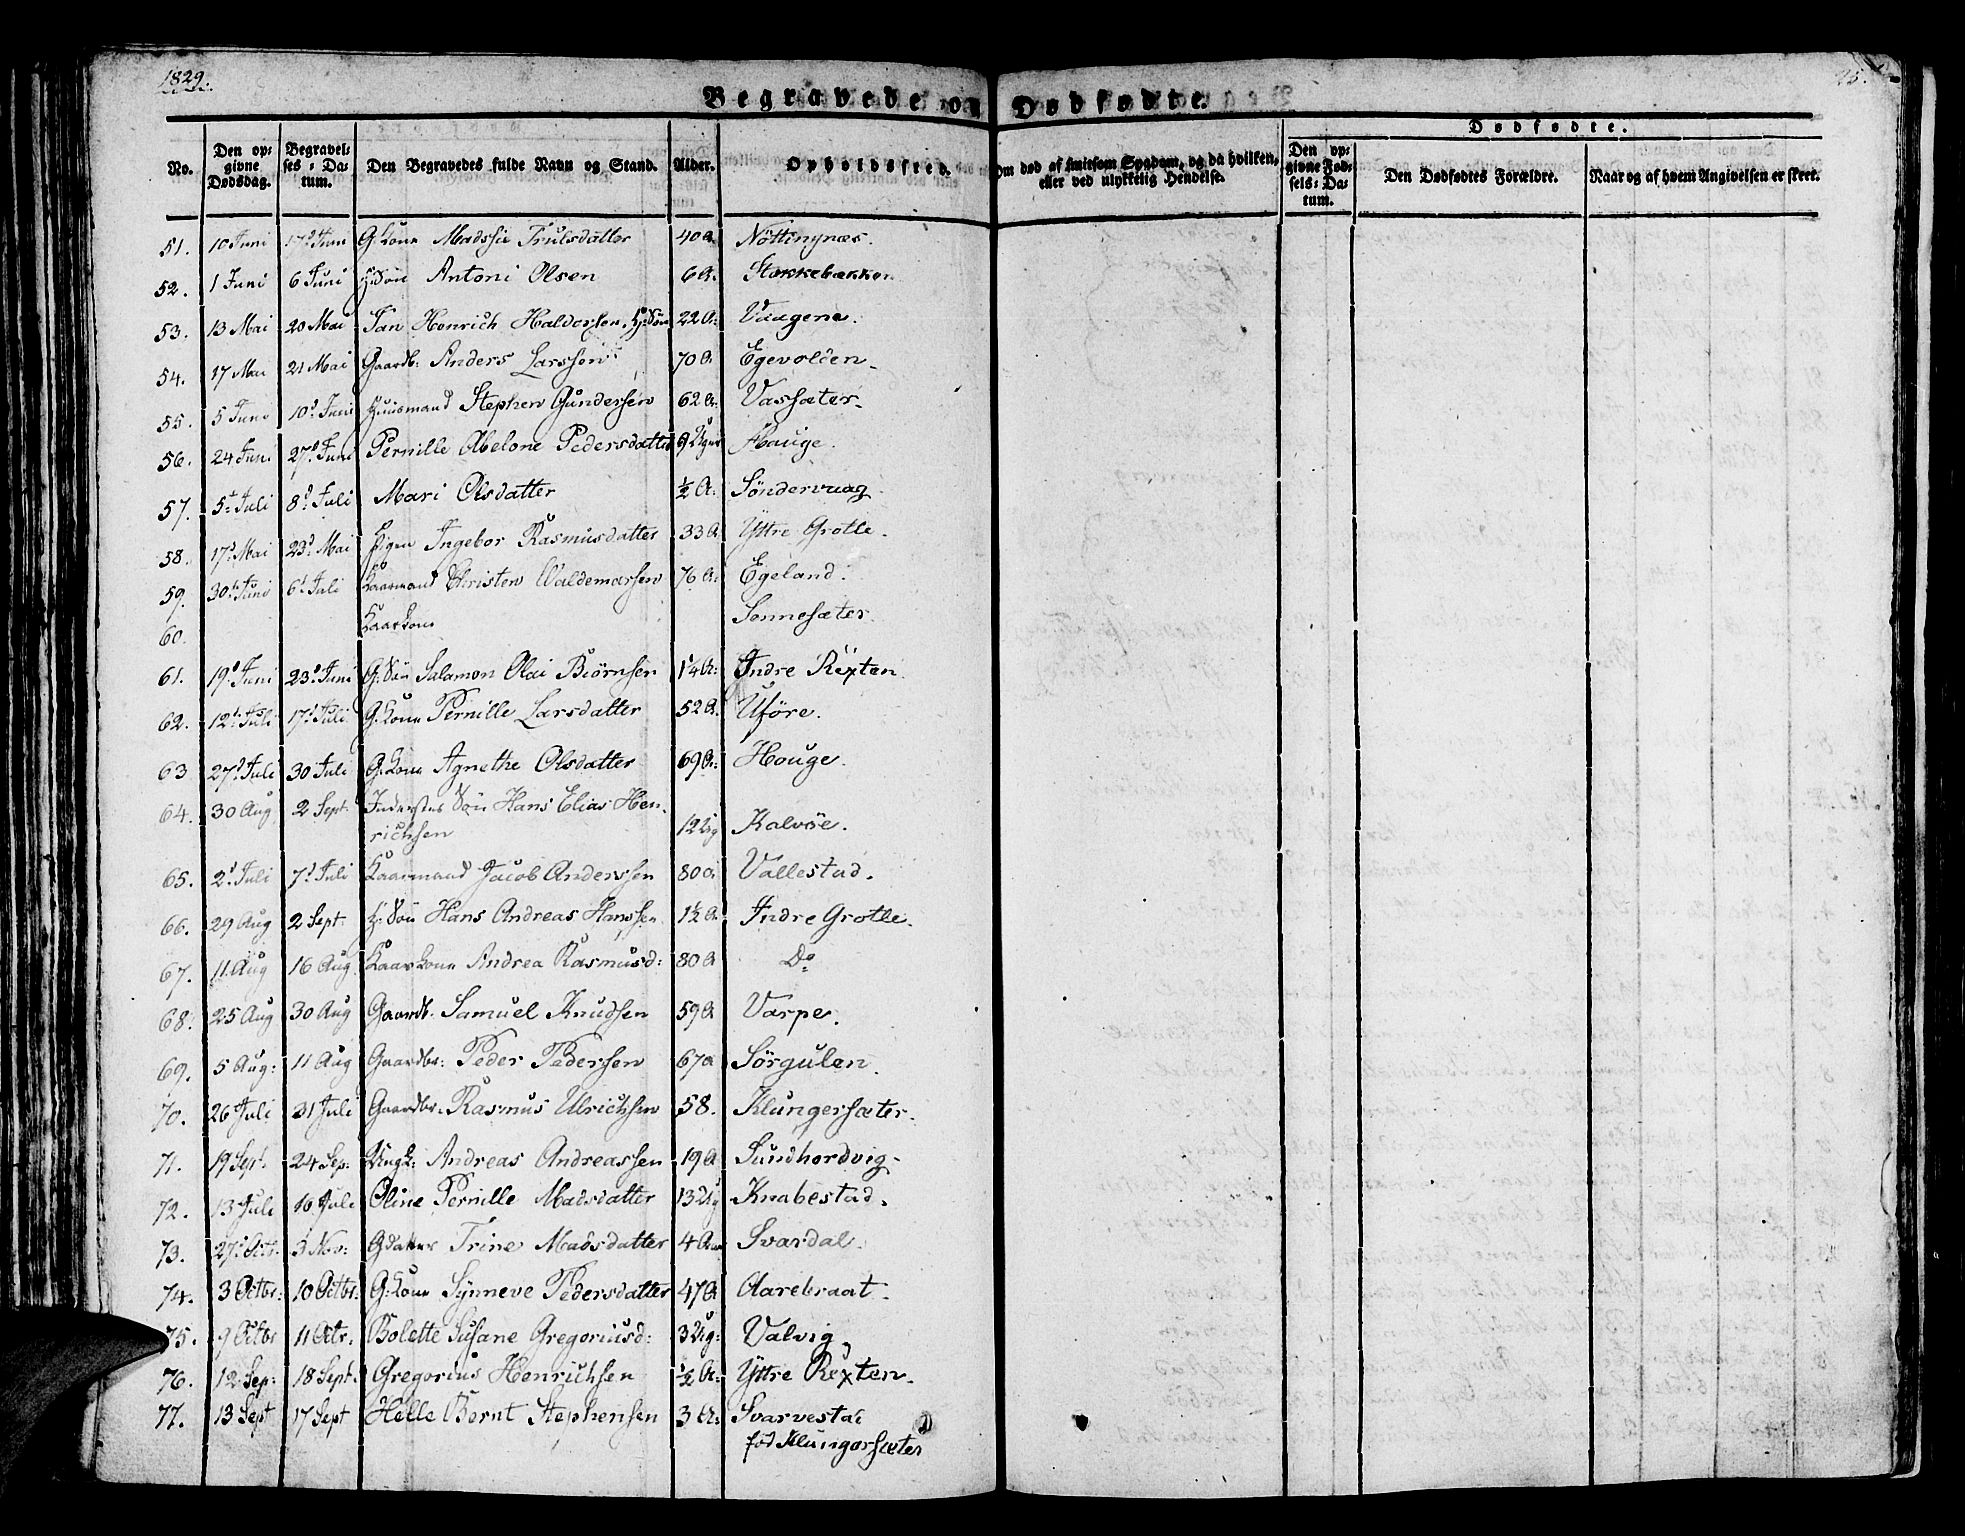 1829.
25.
Begravede og Dødfødte.
No.
Den opgivne Dødsdag.
Begravelses-Datum.
Den Begravedes fulde Navn og Stand.
Alder.
Opholdssted.
Om død af smitsom Sygdom, og da hvilken, eller ved ulykkelig Hendelse.
Dødfødte.
Den opgivne Fødsels-Datum.
Den Dødfødtes Forældre.
Naar og af hvem Angivelsen er skeet.
51. 10 Juni 17d Juni G:kone Madssie Trulsdatter 40 A. Nöttingnæs.
52. 1 Juni 6 Juni Antoni Olsen 6 A. Stokkebækken
53. 13 Mai 20 Mai Jan Henrich Haldorsen, H:Søn 22 A: Vaagene.
54. 17 Mai 21 Mai Gaardb: Anders Larssen 70 A Egevolden
55. 5 Juni 10d Juni Huusmand Stephen Gundersen 62 A. Vassæter
56. 24 Juni 27d Juni Pernille Abelone Pedersdatter 9 Uger Houge.
57. 5t Juli 8d Juli Mari Olsdatter ½ A: Söndervaag
58. 17d Mai 23d Mai Pigen Ingebor Rasmusdatter 33 A Yttre Grotle.
59. 30te Juni 6t Juli Kaarmand Christen Valdemarsen 76 A. Egeland.
60. Kaarkone Sonnesæter.
61. 19d Juni 23d Juni G:Søn Salamon Olai Biörnsen 14 A: Indre Rexten
62. 12t Juli 17d Juli G:kone Pernille Larsdatter 52 A. Uföre.
63 27d Juli 30 Juli G:kone Agnethe Olsdatter 69 A: Houge.
64. 30 Aug 2 Sept. Inderstes Søn Hans Elias Hen-
richsen 12 Ug Kalvöe.
65. 2d Juli 7d Juli Kaarmand Jacob Anderssen 80 A Vallestad.
66. 29 Aug 2 Sept. H:Søn Hans Andreas Hanssen 1½ A Indre Grotle.
67. 11 Aug 16 Aug Kaarkone Andrea Rasmusd: 80 A Do
68. 25 Aug 30 Aug Gaardb. Samuel Knudsen 59 A Varpe.
69. 5 Aug: 11 Aug Gaardbr: Peder Pederssen 67 A Sörgulen.
70. 26 Juli 31 Juli Gaardbr: Rasmus Ulrichsen 58. Klungersæter.
71. 19 Sept. 24 Sep: Ungk: Andreas Andreassen 19 A Sundhordvig
72. 13 Juli 16 Juli Oline Pernille Madsdatter 13 Ug Knabestad.
73. 27d Octr. 3 Nov: Gdatter Trine Madsdatter 4 Svardal.
74. 3 Octbr: 10 Octbr: G:kone Synneve Pedersdatter 47 A Aarebraat.
75. 9 Octbr 11 Octr. Bolette Susane Gregoriusd: 3 Ug: Valvig
76. 12 Sep: 18 Sept. Gregorius Henrichsen ½ A: Yttre Rexten.
77. 13 Sept 17 Sept Helle Bernt Stephensen 3 A: Svarvestad
fød Klungersæter